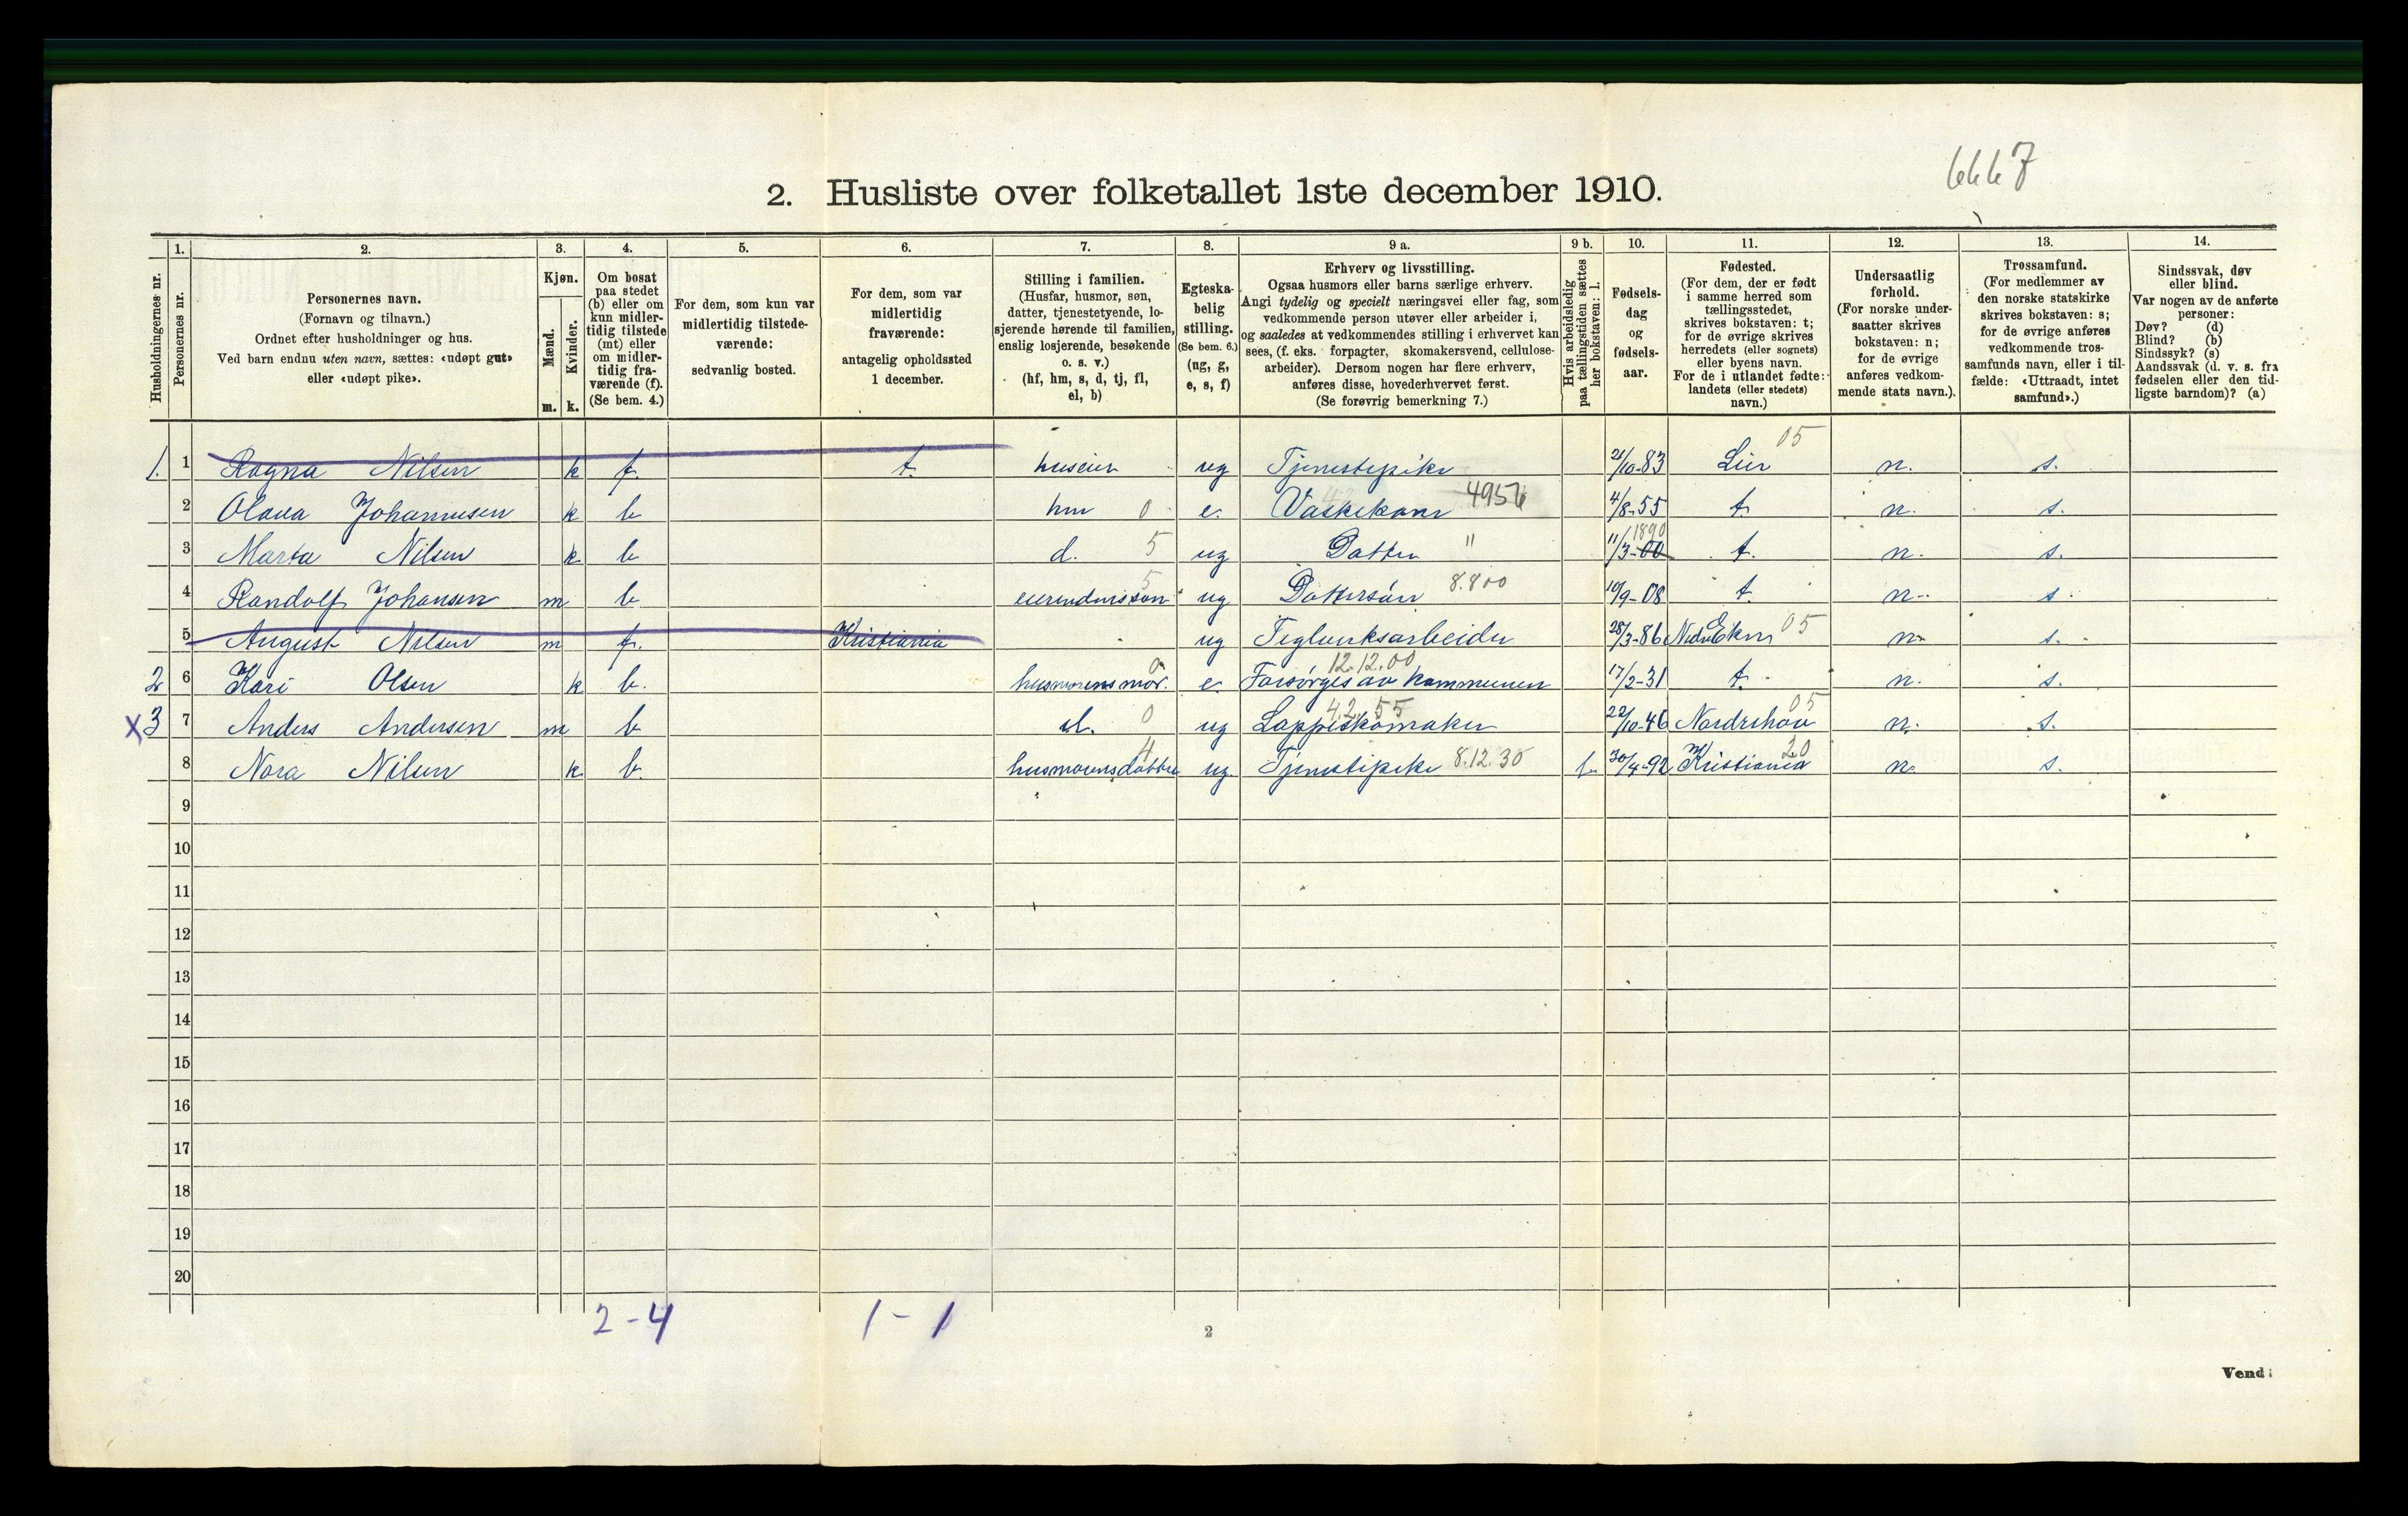 6667
2. Husliste over folketallet 1ste december 1910.
Husholdningernes nr.
1. Personernes nr.
2. Personernes navn.
(Fornavn og tilnavn.)
Ordnet efter husholdninger og hus.
Ved barn endnu uten navn, sættes: «udøpt gut»
eller «udøpt pike».
3. Kjøn.
Mænd. m.
Kvinder. k.
4. Om bosat
paa stedet
(b) eller om
kun midler-
tidig tilstede
(mt) eller
om midler-
tidig fra-
værende (f).
(Se bem. 4.)
5. For dem, som kun var
midlertidig tilstede-
værende:
sedvanlig bosted.
6. For dem, som var
midlertidig
fraværende:
antagelig opholdssted
1 december.
7. Stilling i familien.
(Husfar, husmor, søn,
datter, tjenestetyende, lo-
sjerende hørende til familien,
enslig losjerende, besøkende
o. s. v.)
(hf, hm, s, d, tj, fl,
el, b)
8. Egteska-
belig
stilling.
(Se bem. 6.)
(ug, g,
e, s, f)
9 a. Erhverv og livsstilling.
Ogsaa husmors eller barns særlige erhverv.
Angi tydelig og specielt næringsvei eller fag, som
vedkommende person utøver eller arbeider i,
og saaledes at vedkommendes stilling i erhvervet kan
sees, (f. eks. forpagter, skomakersvend, cellulose-
arbeider). Dersom nogen har flere erhverv,
anføres disse, hovederhvervet først.
(Se forøvrig bemerkning 7.)
9 b. Hvis arbeidsledig
paa tællingstiden sættes
her bokstaven: l.
10. Fødsels-
dag
og
fødsels-
aar.
11. Fødested.
(For dem, der er født
i samme herred som
tællingsstedet,
skrives bokstaven: t;
for de øvrige skrives
herredets (eller sognets)
eller byens navn.
For de i utlandet fødte:
landets (eller stedets)
navn.)
12. Undersaatlig
forhold.
(For norske under-
saatter skrives
bokstaven: n;
for de øvrige
anføres vedkom-
mende stats navn.).
13. Trossamfund.
(For medlemmer av
den norske statskirke
skrives bokstaven: s;
for de øvrige anføres
vedkommende tros-
samfunds navn, eller i til-
fælde: «Uttraadt, intet
samfund».)
14. Sindssvak, døv
eller blind.
Var nogen av de anførte
personer:
Døv? (d)
Blind? (b)
Sindssyk? (s)
Aandssvak (d. v. s. fra
fødselen eller den tid-
ligste barndom)? (a)
1. 1 Ragna Nilsen k f. t. huseier ug Tjenestepike 21/10-83 Lier 05 n. s.
2 Olava Johannesen k b hm 0 e. Vaskekone 4956 4/8-55 t. n. s.
3 Marta Nilsen k b d. 5 ug Datter " 11/3-00 1890 t. n. s.
4 Randolf Johansen m b eierindens søn 5 ug Dattersøn 8.800 10/9-08 t. n. s.
5 August Nilsen m f. Kristiania ug Teglverksarbeider 28/3-86 Nedre Eker 05 n. s.
2 6 Kari Olsen k b. husmorens mor. 0 e. Forsørges av kommunen 12.12.00 17/2-31 t. n. s.
X 3 7 Anders Andersen m b el. 0 ug Lappeskomaker 4.2.55 22/10-46 Norderhov 05 n. s.
8 Nora Nilsen k b. husmorens datter 4 ug. Tjenestepike 8.12.30 l. 30/4-92 Kristiania 20 n. s.
9
10
11
12
13
14
15
16
17
18
19
20
2-4 1-1
2
Vend!